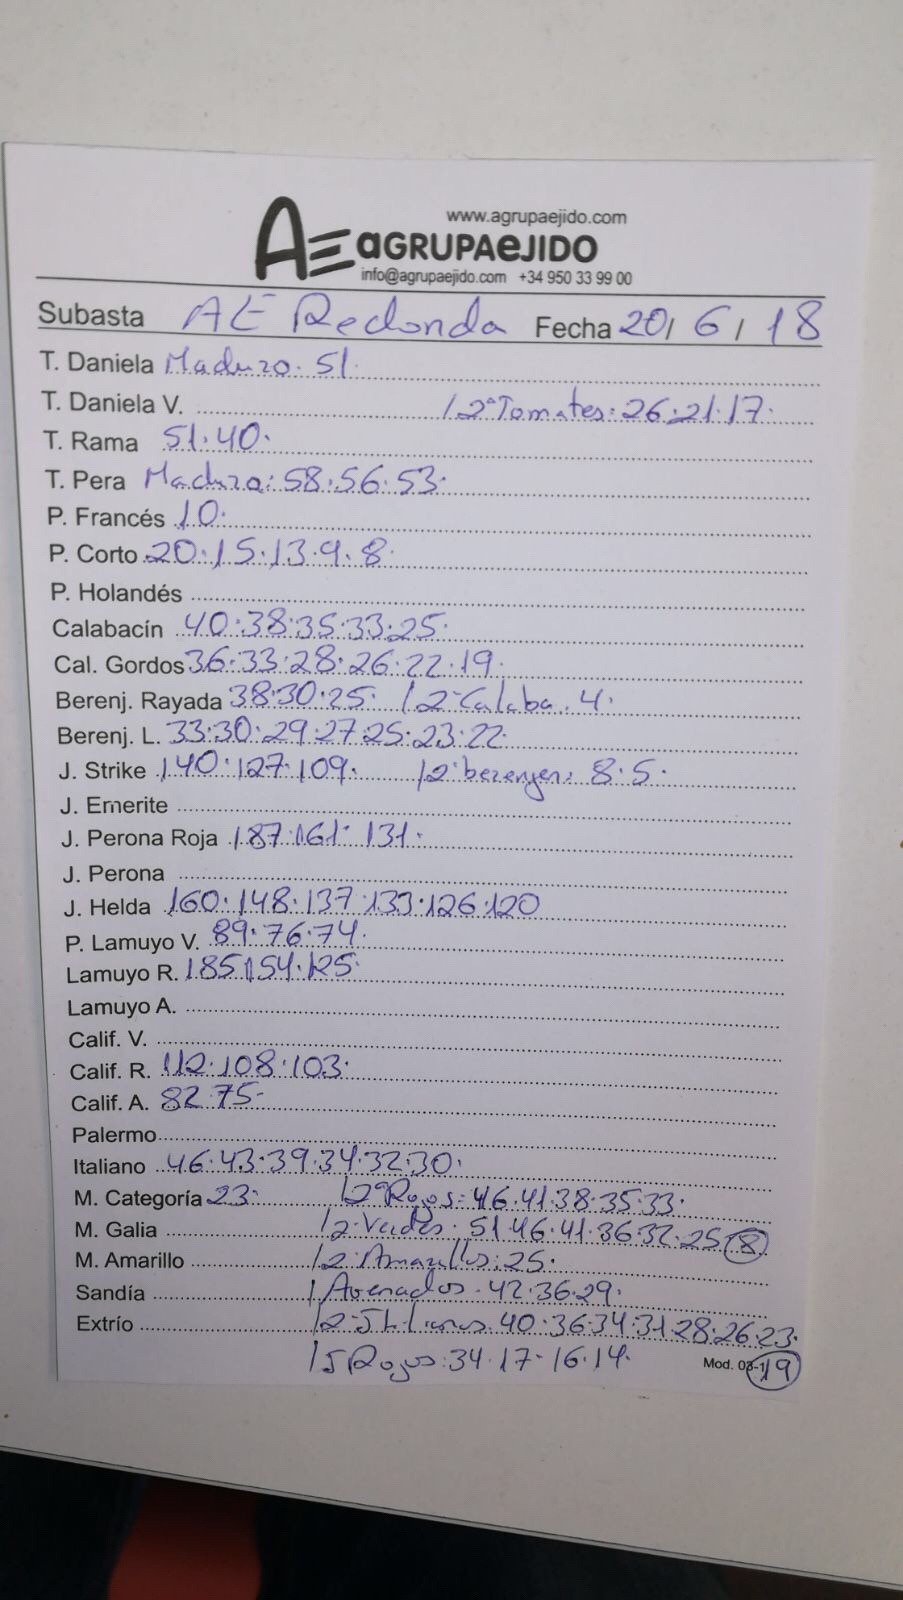 www.agrupaejido.com
AE aGRUPAeJIDO
info@agrupaejido.com +34 950 33 99 00
Subasta AE Redonda Fecha 20/ 6 / 18
T. Daniela Maduro. 51.
T. Daniela V. / 2ª Tomates: 26.21.17.
T. Rama 51.40.
T. Pera Maduro: 58.56.53.
P. Francés 10.
P. Corto 20.15.13.9.8.
P. Holandés
Calabacín 40.38.35.33.25.
Cal. Gordos 36.33.28.26.22.19.
Berenj. Rayada 38.30.25. / 2ª Calaba. 4.
Berenj. L. 33.30.29.27.25.23.22.
J. Strike 140.127.109. / 2ª berenjen: 8.5.
J. Emerite
J. Perona Roja 187.161. 131.
J. Perona
J. Helda 160.148.137.133.126.120
P. Lamuyo V. 89.76.74.
Lamuyo R. 185.154.125.
Lamuyo A.
Calif. V.
Calif. R. 112.108.103.
Calif. A. 82.75-
Palermo
Italiano 46.43.39.34.32.30.
M. Categoría 23. / 2ª Rojos: 46.41.38.35.33.
M. Galia / 2ª Verdes. 51.46.41.36.32.25 18
M. Amarillo / 2ª Amarillos: 25.
Sandía / Asenados. 42.36.29.
Extrío / 2ª Italianos. 40.36.34.31.28.26.23.
/ J Rojos: 34.17-16.14. Mod. 03-1 19